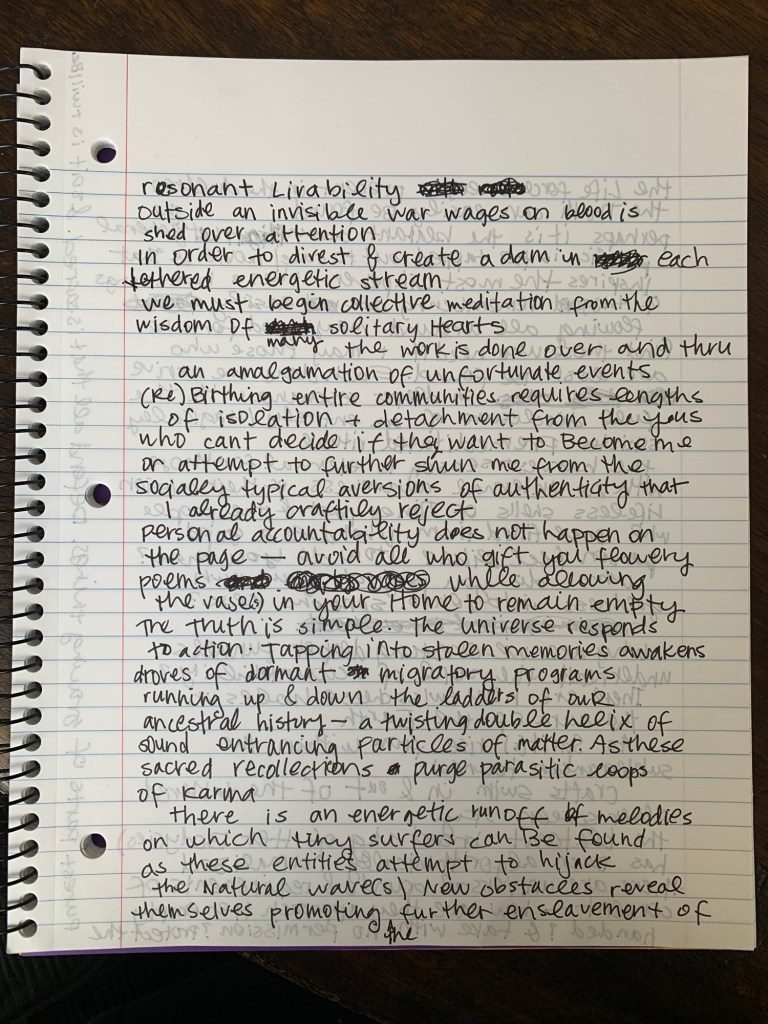 resonant Livability
outside an invisible war wages on blood is
shed over attention
In order to divest & create a dam in each
tethered energetic stream
we must begin collective meditation from the
wisdom Of many solitary Hearts
the work is done over and thru
an amalgamation of unfortunate events
(Re) Birthing entire communities requires lengths
of isolation + detachment from the yous
who cant decide if they want to Become me
or attempt to further shun me from the
socially typical aversions of authenticity that
already craftily reject
personal accountability does not happen on
the page — avoid all who gift you flowery
poems while allowing
the vase(s) in your Home to remain empty
The truth is simple. The universe responds
to action. Tapping into stolen memories awakens
droves of dormant migratory programs
running up & down the ladders of ouR
ancestral history — a twisting double helix of
sound entrancing particles of matter. As these
sacred recollections purge parasitic loops
of Karma
there is an energetic runoff of melodies
on which tiny surfers can Be found
as these entities attempt to hijack
the Natural wave(s) New obstacles reveal
themselves promoting further enslavement of
the